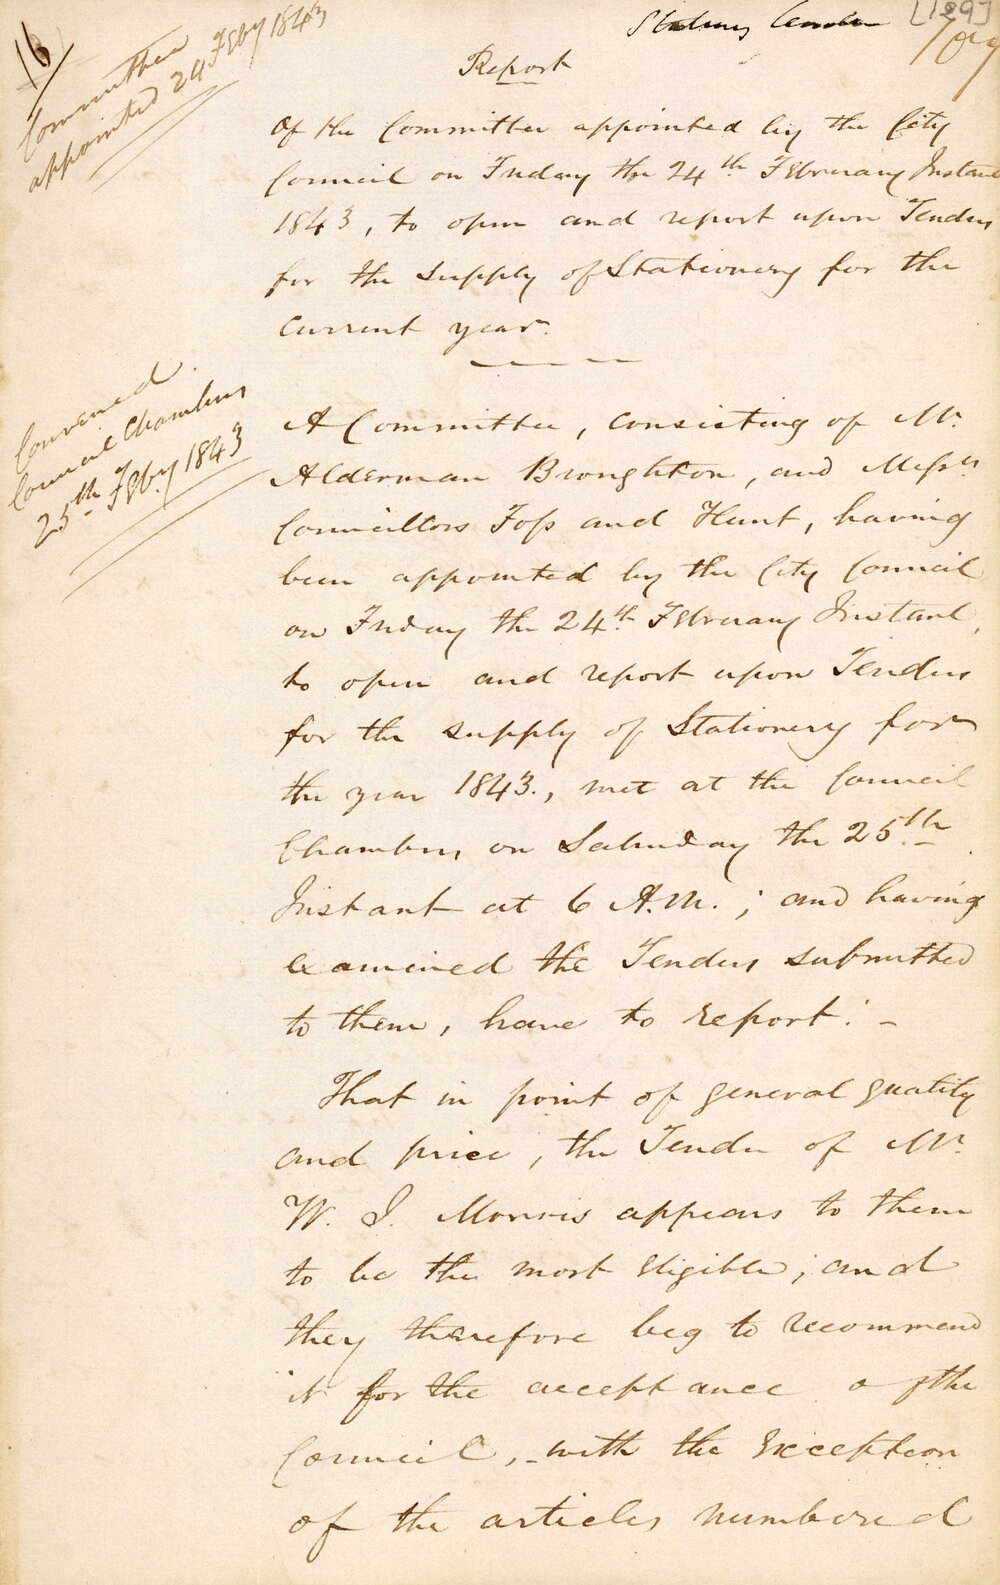 16/
Committee
appointed 24 Feby 1843
[129]
109
Report
Of the Committee appointed by the City
Council on Friday the 24th February Instant
1843, to open and report upon Tenders
for the supply of Stationery for the
Current year.
Convened
Council Chambers
25th Feby 1843
A Committee, consisting of Mr.
Alderman Broughton, and Messrs
Councillors Foss and Hunt, having
been appointed by the City Council
on Friday the 24th February Instant,
to open and report upon Tenders
for the supply of Stationery for
the year 1843., met at the Council
Chambers on Saturday the 25th
Instant at 6 A.M.; and having
examined the Tenders submitted
to them, have to report: -
That in point of general quality
and price, the Tender of Mr.
W. J. Morris appears to them
to be the most eligible; and
they therefore beg to recommend
it for the acceptance of the
Council, - with the exception
of the articles numbered